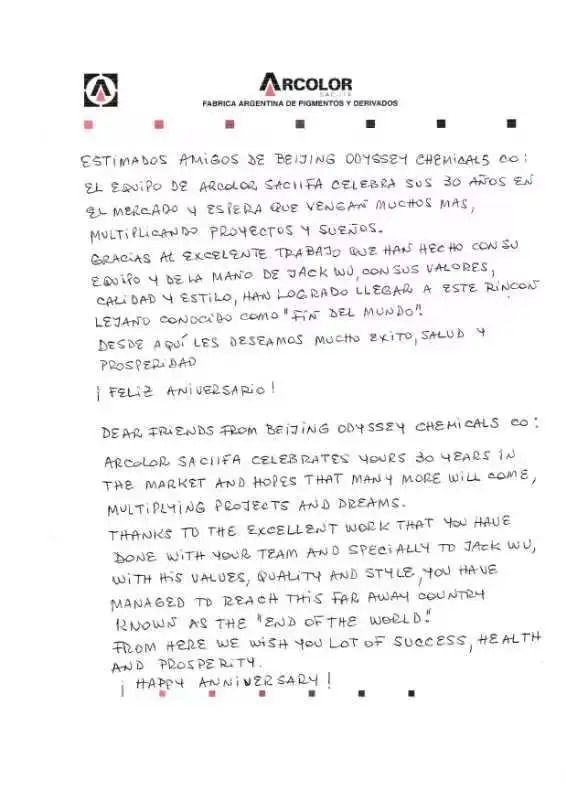 ARCOLOR
SACIFIA
FABRICA ARGENTINA DE PIGMENTOS Y DERIVADOS
ESTIMADOS AMIGOS DE BEIJING ODYSSEY CHEMICALS CO:
EL EQUIPO DE ARCOLOR SACIIFA CELEBRA SUS 30 AÑOS EN
EL MERCADO Y ESPERA QUE VENGAN MUCHOS MAS,
MULTIPLICANDO PROYECTOS Y SUEÑOS.
GRACIAS AL EXCELENTE TRABAJO QUE HAN HECHO CON SU
EQUIPO Y DE LA MANO DE JACK WU, CON SUS VALORES,
CALIDAD Y ESTILO, HAN LOGRADO LLEGAR A ESTE RINCON
LEJANO CONOCIDO COMO "FIN DEL MUNDO".
DESDE AQUÍ LES DESEAMOS MUCHO EXITO, SALUD Y
PROSPERIDAD
¡ FELIZ ANIVERSARIO !
DEAR FRIENDS FROM BEIJING ODYSSEY CHEMICALS CO:
ARCOLOR SACIIFA CELEBRATES YOURS 30 YEARS IN
THE MARKET AND HOPES THAT MANY MORE WILL COME,
MULTIPLYING PROJECTS AND DREAMS.
THANKS TO THE EXCELLENT WORK THAT YOU HAVE
DONE WITH YOUR TEAM AND SPECIALLY TO JACK WU,
WITH HIS VALUES, QUALITY AND STYLE, YOU HAVE
MANAGED TO REACH THIS FAR AWAY COUNTRY
KNOWN AS THE "END OF THE WORLD".
FROM HERE WE WISH YOU LOT OF SUCCESS, HEALTH
AND PROSPERITY.
¡ HAPPY ANNIVERSARY !